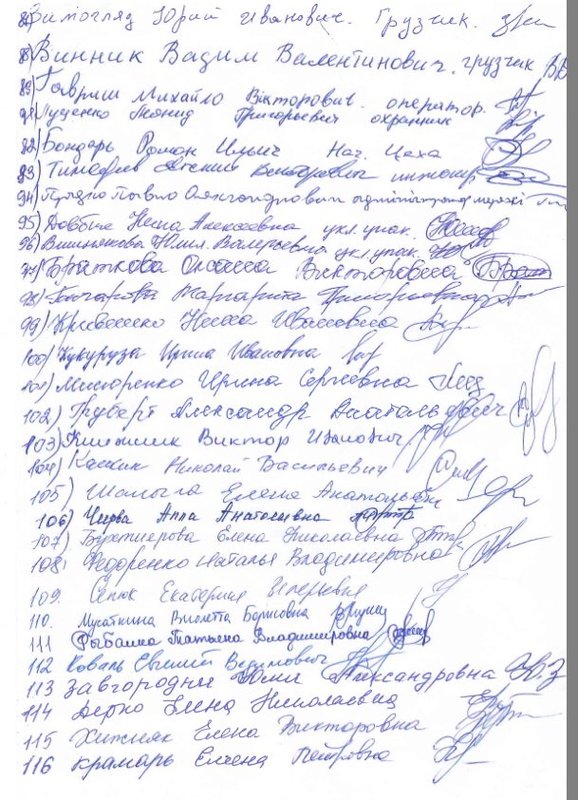 Вимогляд Юрий Иванович. Грузчик.
Винник Вадим Валентинович. грузчик
Гавриш Михайло Вікторович. оператор.
Луценко Леонид Григорьевич охранник
92) Бондарь Роман Ильич Нач. Цеха
93) Тимофеев Евгений
94)
95) Довбня Нина Алексеевна укл. упак.
96) Вишнякова Юлия Валерьевна укл. упак.
97) Браткова Оксана Викторовна
98) Гончарова Маргарита Григорьевна
99) Кривошенко Нина Ивановна
100) Кукуруза Ирина Ивановна
101) Мисюренко Ирина Сергеевна
102) Губерт Александр Анатольевич
103) Виктор Иванович
104) Кашкин Николай Васильевич
105) Шапыга Елена Анатольевна
106) Чирва Алла Анатолиевна
107) Бухтиерова Елена Николаевна
108. Федоренко Наталья Владимировна
109. Сепюк Екатерина Игоревна
110. Мусаткина Виолетта Борисовна
111 Рыбалка Татьяна Владимировна
112 Коваль Евгений Вадимович
113 Завгородняя Юлия Александровна
114 Дерко Елена Николаевна
115 Хижняк Елена Викторовна
116 Крамарь Елена Петровна